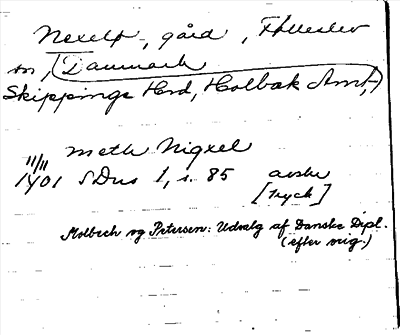 Nexelø, gård, Følleslev
sn, Danmark
Skippinge Hrd, Holbæk Amt,
meth Niqxel
11/11
1401 SDns 1, s. 85 avskr
[tryck]
Molbech og Petersen: Udvalg af Danske Dipl.
(efter orig.)